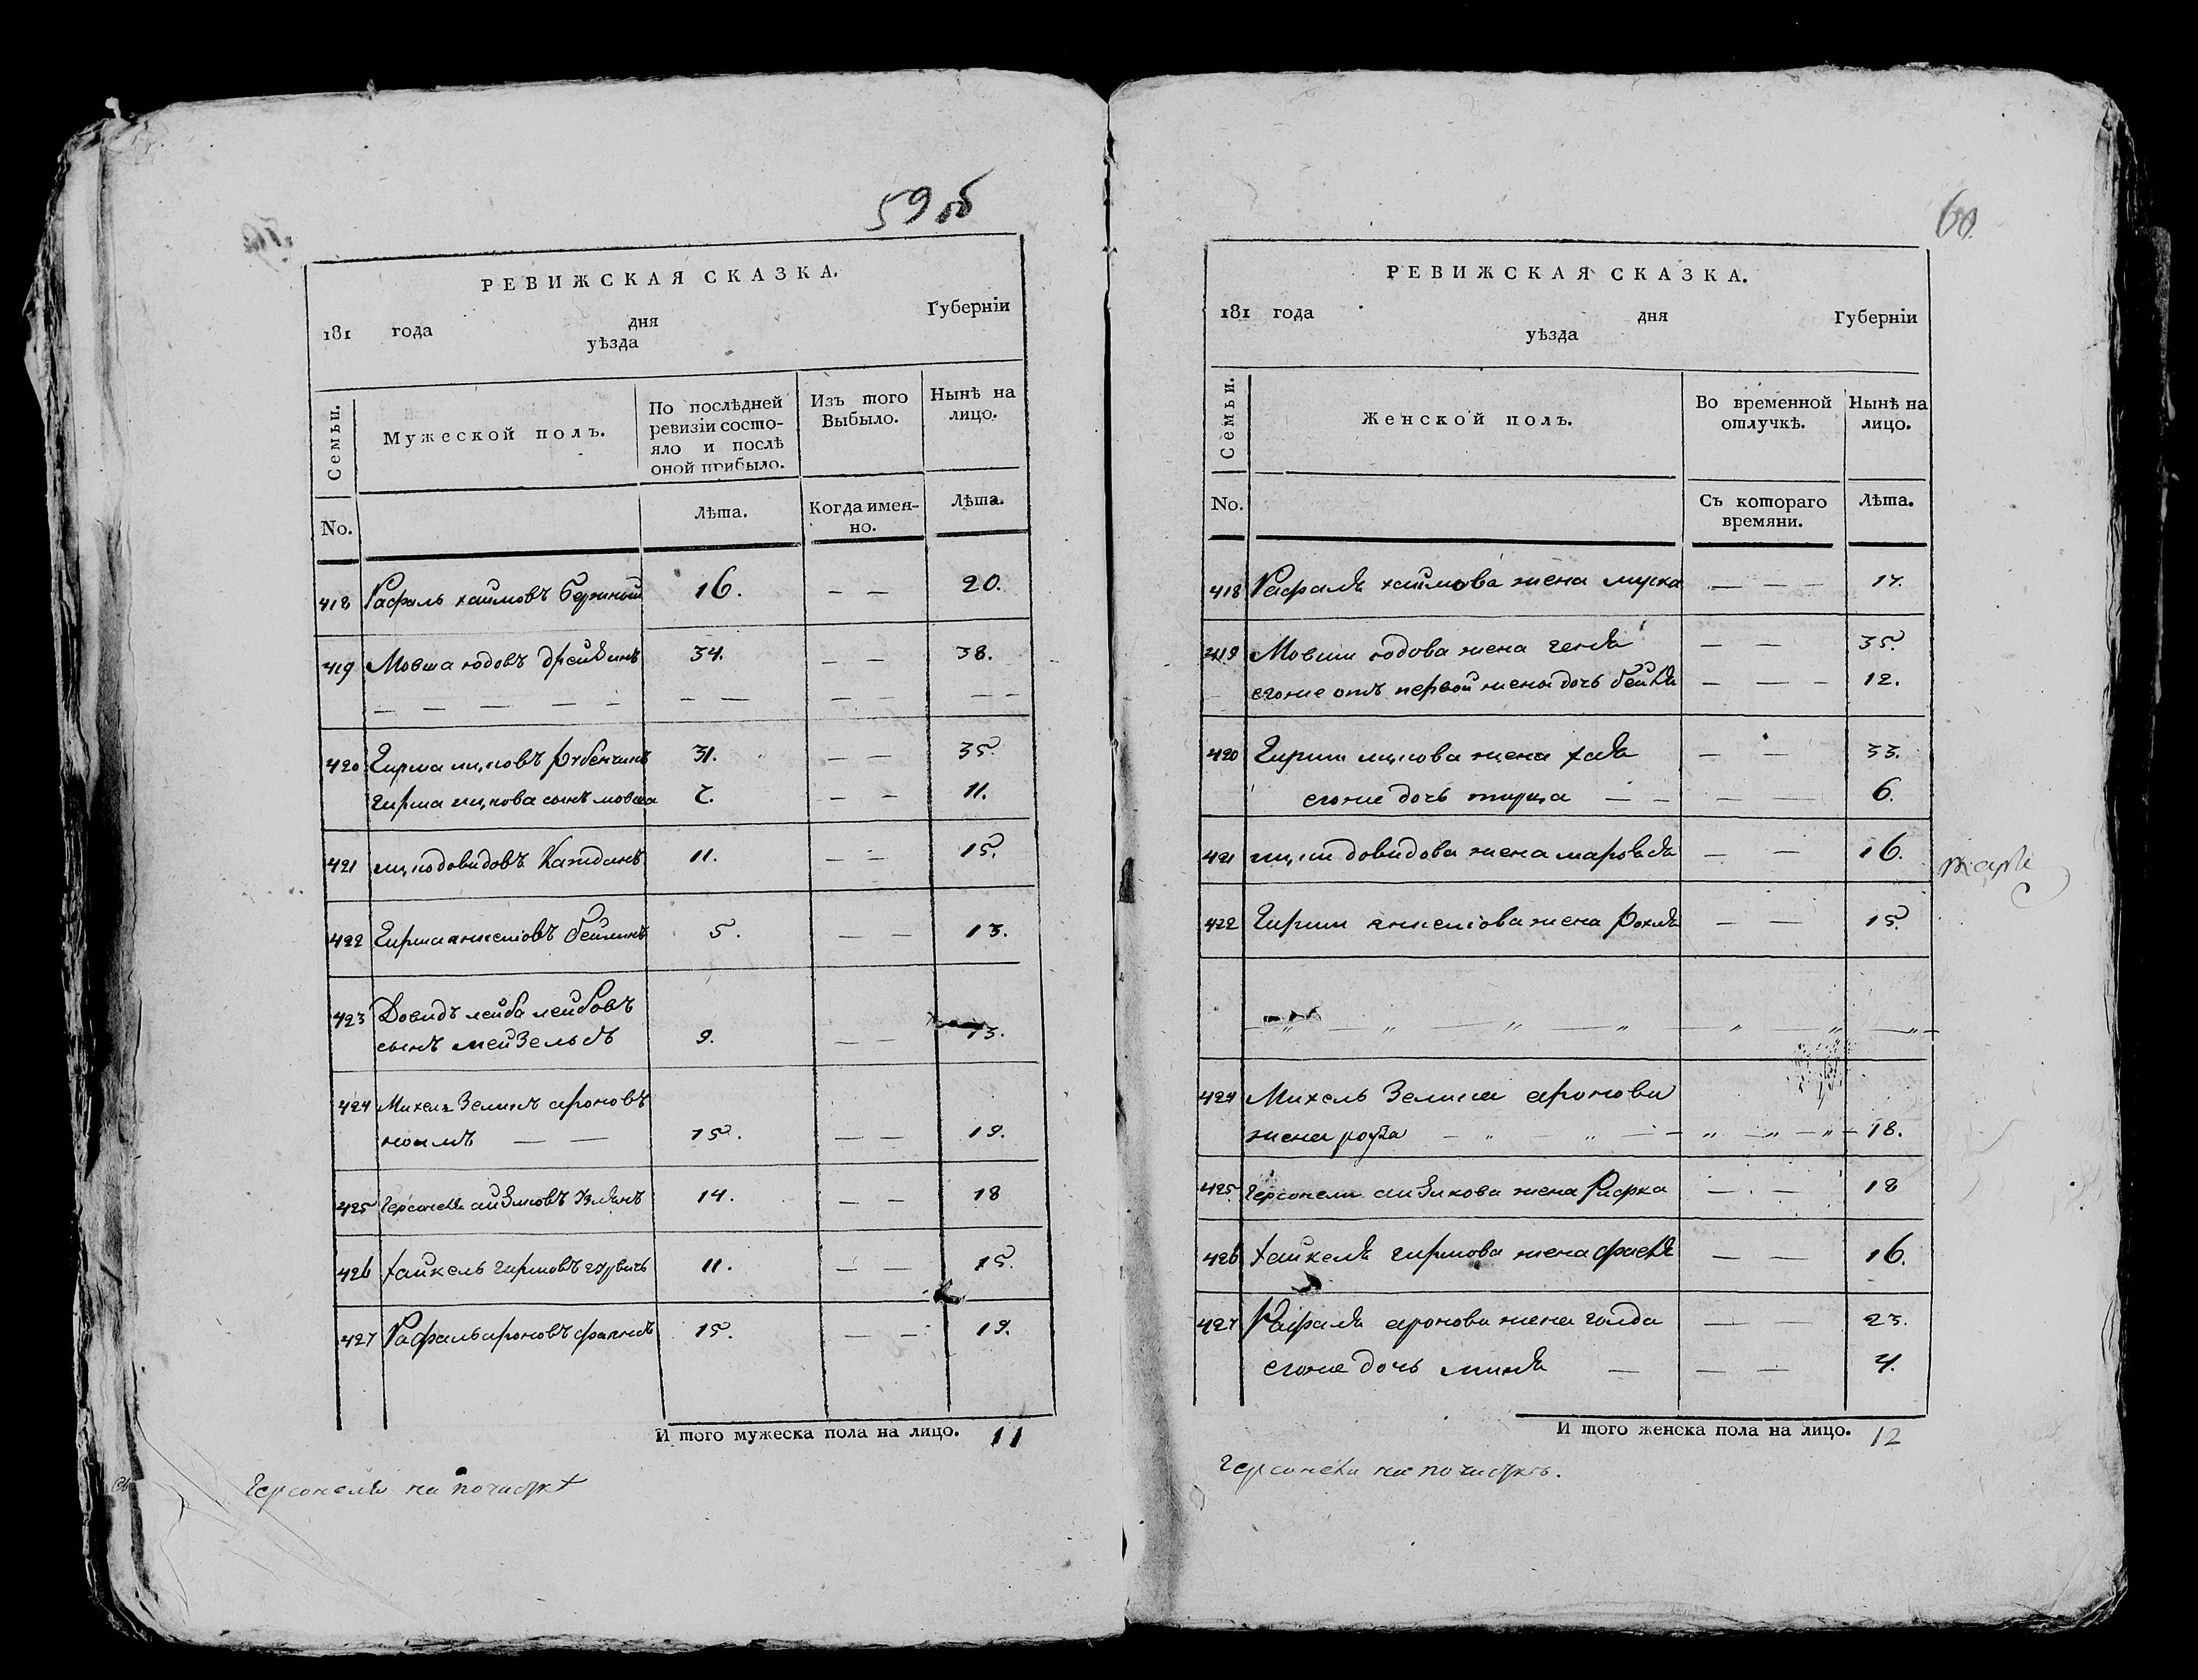 59 об
РЕВИЖСКАЯ СКАЗКА.
181 года дня Губерніи
уѣзда
Семьи.
Мужеской полъ.
По послѣдней ревизіи состо-
яло и послѣ
оной прибыло.
Изъ того Выбыло.
Нынѣ на лицо.
No.
Лѣта.
Когда имен-
но.
Лѣта.
418 Рафаль хаимовъ 16. — — 20.
419 Мовша юдовъ 34. — — 38.
— — — — — — — — — — —
420 Гирша ицковъ рубенчикъ 31. — — 35
гирша ицкова сынъ мовша 7. — — 11.
421 ицко довидовъ Кажданъ 11. — — 15.
422 Гирша бейлинъ 5. — — 13.
423 Довидъ лейба лейбовъ
сынъ мейзель 9. — — 13.
424 Михель Зеликъ ароновъ
— — 15. — — 19.
425 Герсонель 14. — — 18
426 хайкель гиршовъ гурвичъ 11. — — 15.
427 Рафаль ароновъ 15. — — 19.
И того мужеска пола на лицо. 11
на почистке
60
РЕВИЖСКАЯ СКАЗКА.
181 года дня Губерніи
уѣзда
Семьи.
Женской полъ.
Во временной отлучкѣ.
Нынѣ на лицо.
No.
Съ котораго времяни.
Лѣта.
418 Рафаля хаимова жена муска — — — 17.
419 Мовши юдова жена геня — — 35.
его же отъ первой жены дочь бейля — — — 12.
420 Гирши ицкова жена хая — — 33.
его же дочь — — — — 6.
421 ицки довидова жена — — 16.
422 Гирши жена рохля — — 15.
424 Михель Зелика аронова
жена — 18.
425 Герсонели жена Рифка — — 18
426 хайкеля гиршова жена — — 16.
427 Рафаля аронова жена голда — — 23.
его же дочь миня — — — 4.
И того женска пола на лицо. 12
на почистке.